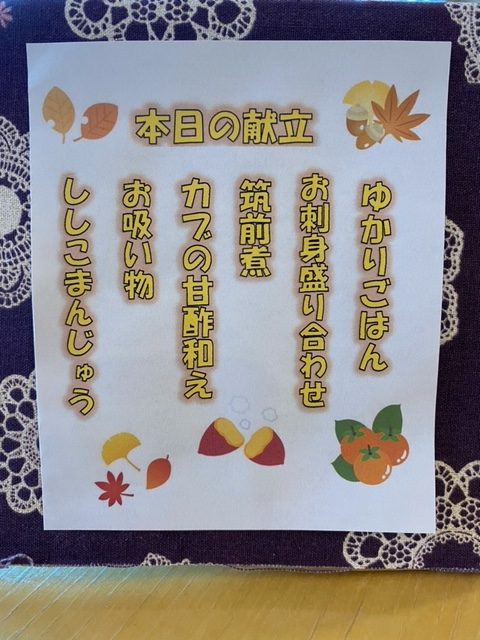 本日の献立
ゆかりごはん
お刺身盛り合わせ
筑前煮
カブの甘酢和え
お吸い物
ししこまんじゅう